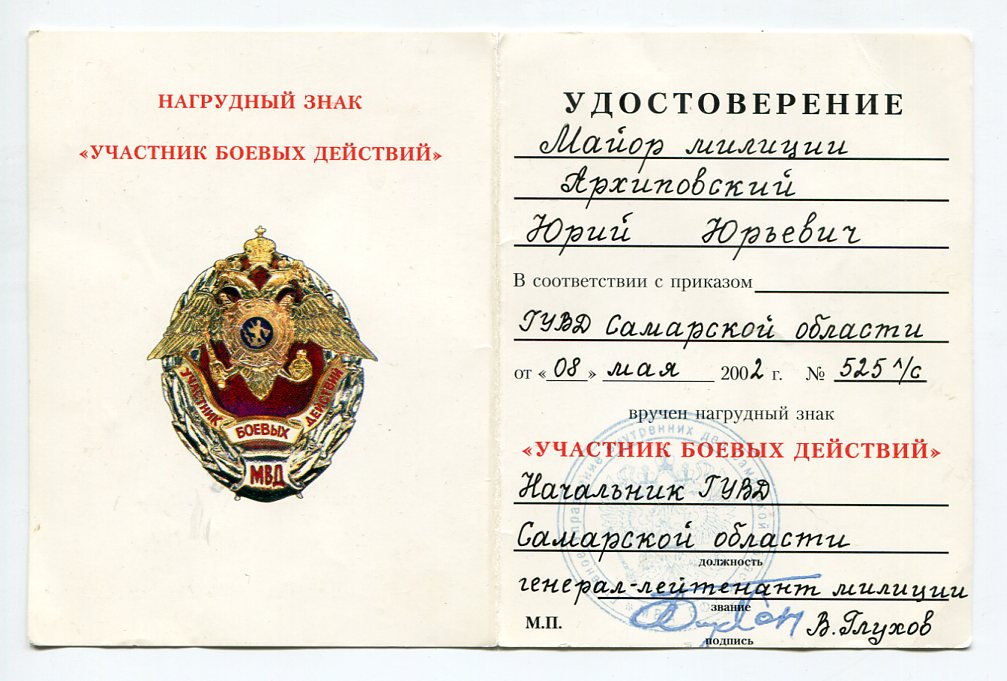 НАГРУДНЫЙ ЗНАК
«УЧАСТНИК БОЕВЫХ ДЕЙСТВИЙ»
УЧАСТНИК БОЕВЫХ ДЕЙСТВИЙ
МВД
УДОСТОВЕРЕНИЕ
Майор милиции
Архиповский
Юрий Юрьевич
В соответствии с приказом
ГУВД Самарской области
от «08» мая 2002 г. № 525 л/с
вручен нагрудный знак
«УЧАСТНИК БОЕВЫХ ДЕЙСТВИЙ»
Начальник ГУВД
Самарской области
должность
генерал-лейтенант милиции
звание
М.П. В.Глухов
подпись